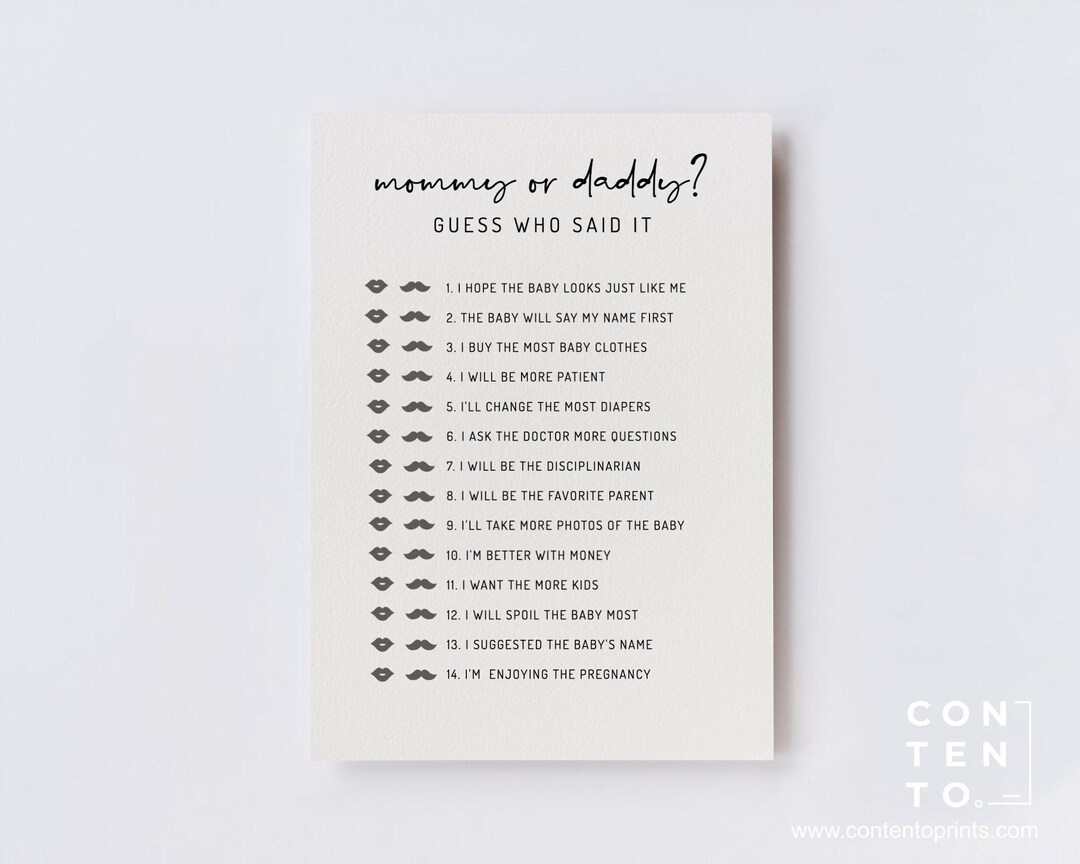 mommy or daddy?
GUESS WHO SAID IT
1. I HOPE THE BABY LOOKS JUST LIKE ME
2. THE BABY WILL SAY MY NAME FIRST
3. I BUY THE MOST BABY CLOTHES
4. I WILL BE MORE PATIENT
5. I'LL CHANGE THE MOST DIAPERS
6. I ASK THE DOCTOR MORE QUESTIONS
7. I WILL BE THE DISCIPLINARIAN
8. I WILL BE THE FAVORITE PARENT
9. I'LL TAKE MORE PHOTOS OF THE BABY
10. I'M BETTER WITH MONEY
11. I WANT THE MORE KIDS
12. I WILL SPOIL THE BABY MOST
13. I SUGGESTED THE BABY'S NAME
14. I'M  ENJOYING THE PREGNANCY
CON
TEN
TO.
www.contentoprints.com